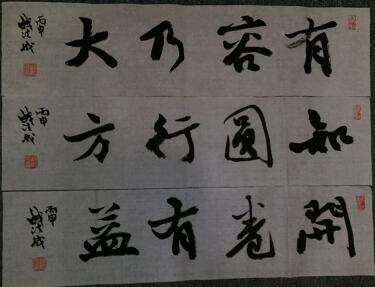 有容乃大
丙申
知圓行方
丙申
開卷有益
丙申